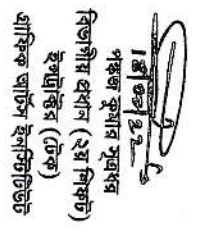 পঙ্কজ কুমার সূত্রধর
বিভাগীয় প্রধান (২য় শিফট)
ইন্সট্রাক্টর (টেক)
গ্রাফিক আর্টস ইনস্টিটিউট